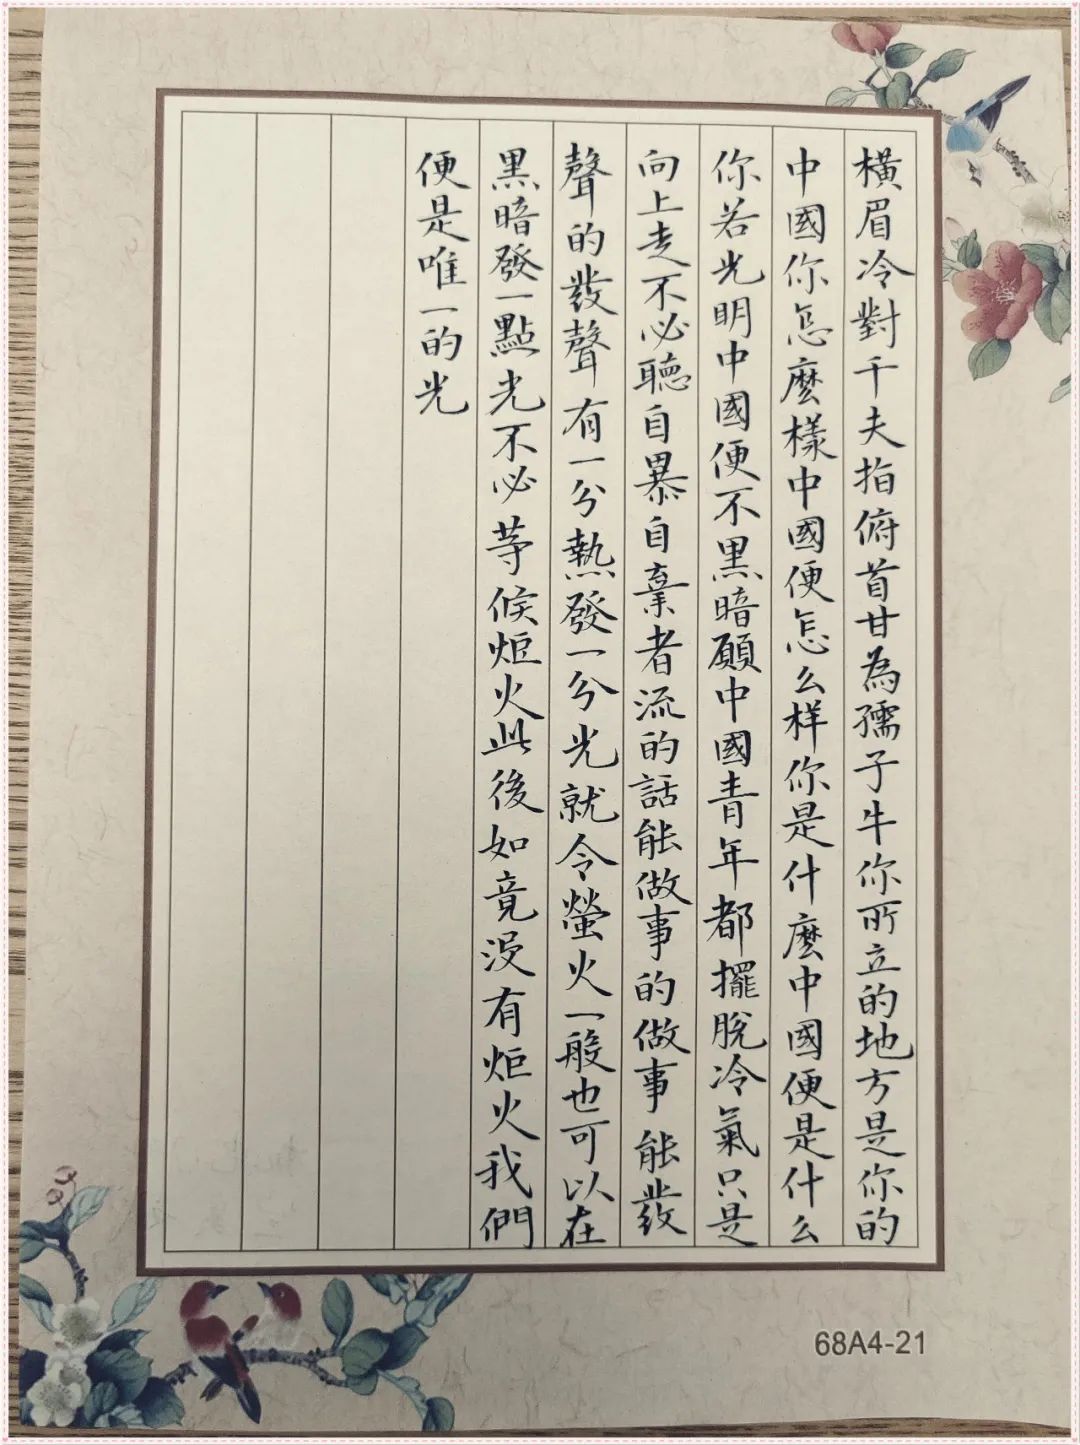 橫眉冷對千夫指俯首甘為孺子牛你所立的地方是你的
中國你怎麼樣中國便怎么样你是什麼中國便是什么
你若光明中國便不黑暗願中國青年都擺脫冷氣只是
向上走不必聽自暴自棄者流的話能做事的做事能發
聲的發聲有一分熱發一分光就令螢火一般也可以在
黑暗發一點光不必等候炬火此後如竟没有炬火我們
便是唯一的光
68A4-21